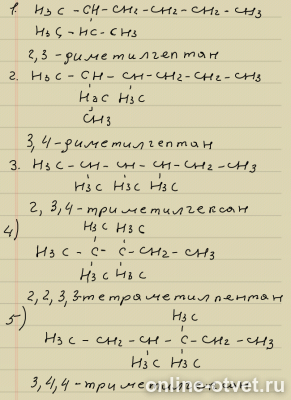 1. H3C - CH - CH2 - CH2 - CH2 - CH3
H3C - HC - CH3
2,3 - диметилгептан
2. H3C - CH - CH - CH2 - CH2 - CH3
H2C H3C
CH3
3,4 - диметилгептан
3. H3C - CH - CH - CH - CH2 - CH3
H3C H3C H3C
2, 3,4 - триметилгексан
4)
H3C H3C
H3C - C - C - CH2 - CH3
H3C H3C
2,2,3,3-тетраметилпентан
5)
H3C
H3C - CH2 - CH - C - CH2 - CH3
H3C H3C
3,4,4 - триметил
online-otvet.ru